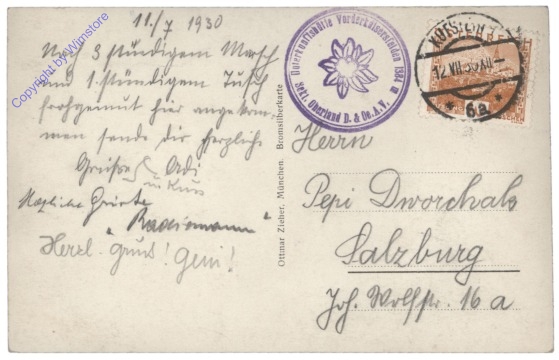 11./7 1930
Nach 3 stündigem Marsch
und 1. stündigem Tusch
frohgemut hier angekom-
men sende dir herzliche
Grüße Adi
u. Kuss
Herzliche Grüsse
Herzl. Gruß! Geni!
Unterkunftshütte Vorderkaiserfelden 1384 m
Sekt. Oberland D. & Oe. A. V.
KUFSTEIN
12.VII.30.XII
* 6a *
Ottmar Zieher, München. Bromsilberkarte
Herrn
Pepi Dworchals
Salzburg
Joh. Wolfstr. 16a
Copyright by Wimstore